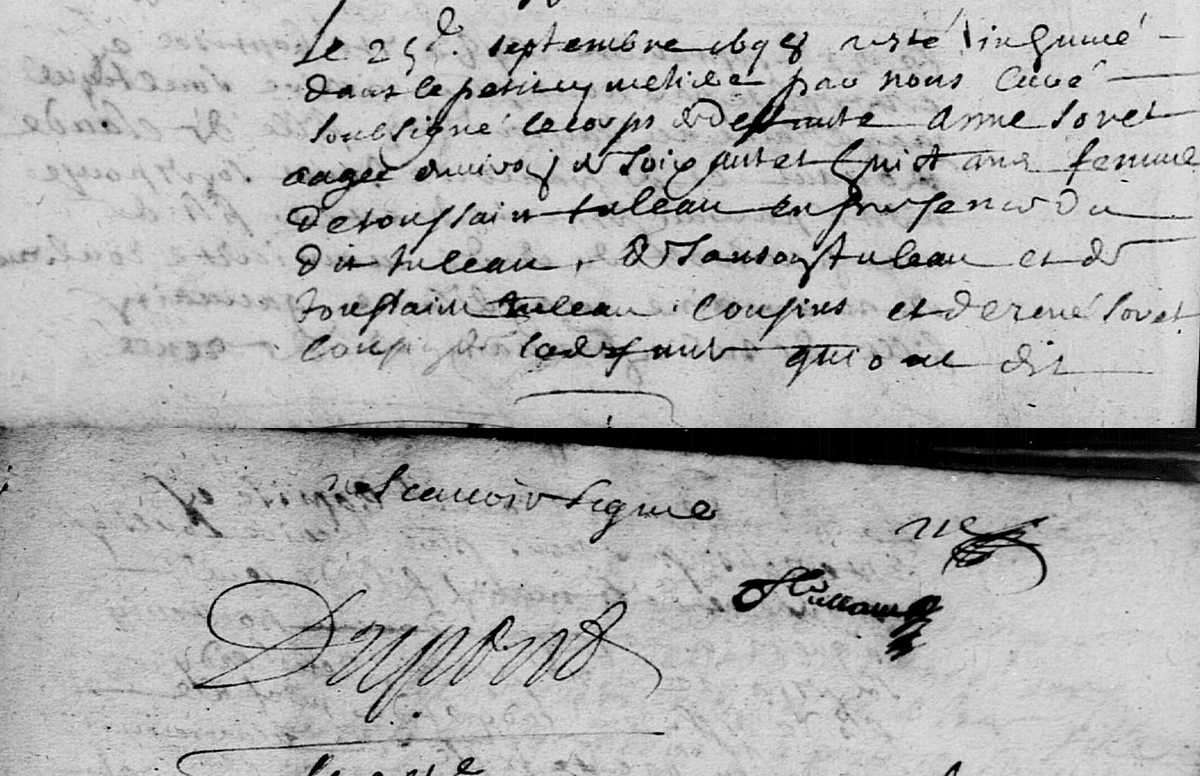 Le 25e. septembre 1698 a esté inhumé
dans le petit cymetiere par nous curé
soubsigné le corps de deffunte anne soret
aagee denviron de soixante et huit ans femme
de toussaint tuleau en presence du
dit tuleau, de tuleau et de
toussaint tuleau cousins et de rené soret
cousin de la deffunte qui ont dit
ne scauoir signé
Dupont